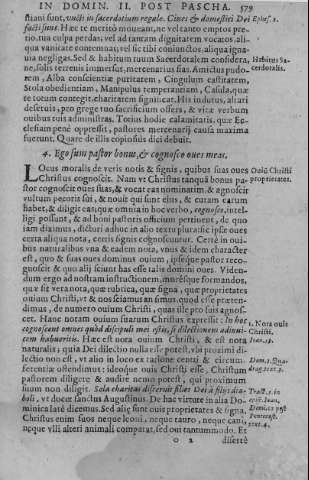 IN DOMIN. II. POST PASCHA. 579
stiani sunt, vncti in sacerdotium regale. Ciues & domestici Dei Ephes. 2.
facti sunt. Hæc te meritò moueant, ne vel tanto emptos pre-
tio, tua culpa perdas, vel ad tantam dignitatem vocatos, ali-
qua vanitate contemnas, vel sic tibi coniunctos, aliqua igna-
uia negligas. Sed & habitum tuum Sacerdotalem considera, Habitus Sa-
ne, solis terrenis immersus, mercenarius fias. Amictus pudo- cerdotalis.
rem, Alba conscientiæ puritatem, Cingulum castitatem,
Stola obedientiam, Manipulus temperantiam, Casula, quæ
te totum contegit, charitatem significat. His indutus, altari
deseruis, pro grege tuo sacrificium offers, & vitæ verbum
ouibus tuis administras. Totius hodie calamitatis, quæ Ec-
clesiam penè oppressit, pastores mercenarij causa maxima
fuerunt. Quare de illis copiosius dici debuit.
4. Ego sum pastor bonus, & cognosco oues meas.
LOcus moralis de veris notis & signis, quibus suas oues Ouiũ Christi
Christus cognoscit. Nam vt Christus tanquã bonus pa- proprietates.
stor cognoscit oues suas, & vocat eas nominatim & agnoscit
vultum pecoris sui, & nouit qui sunt eius, & curam earum
habet, & diligit eas; quæ omnia in hoc verbo, cognosco, intel-
ligi possunt, & ad boni pastoris officium pertinent, de quo
iam diximus,
certa aliqua nota, certis signis cognoscuntur. Certè in oui-
bus naturalibus vna & eadem nota, vnus & idem character
est, quo & suas oues dominus ouium, ipseque pastor reco-
gnoscit & quo alij sciunt has esse talis domini oues. Viden-
dum ergo ad nostram instructionem, in
quæ sit vera nota, quæ rubrica, quæ signa, quæ proprietates
ouium Christi, vt & nos sciamus an simus, quod esse prætẽn-
dimus, de numero ouium Christi, quas ille pro suis agnos-
cet. Hanc notam ouium suarum Christus expressit: In hoc 1. Nota ouis
cognoscent omnes quòd discipuli mei estis, si dilectionem adinui- Christi.
cem habueritis. Hæc est nota ouium Christi, & est nota Ioan. 13.
naturalis; quia Dei dilectio nulla esse potest, vbi proximi di-
lectio non est, vt alio in loco ex ratione centri & circum-
ferentiæ ostendimus: ideoque ouis Christi esse, Christum
pastorem diligere & audire nemo potest, qui proximum
suum non diligit. Sola charitas discernit filios Dei à filijs dia-
boli, vt docet sanctus Augustinus. De hac virtute in alia Do-
minica latè dicemus. Sed aliæ sunt ouis proprietates & signa,
Christus enim suos neque leoni, neque tauro, neque cani,
neque vlli alteri animali comparat, sed oui tantummodo. Et
O o 2 disertè